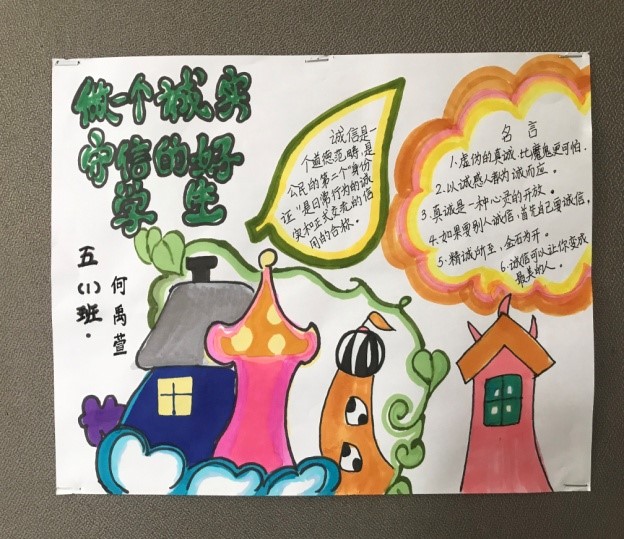 做一个诚实
守信的好
学生
五(1)班.
何禹萱
诚信是一
个道德范畴,是
公民的第二个"身份
证"是日常行为的诚
实和正式交流的信
用的合称.
名言
1.虚伪的真诚,比魔鬼更可怕.
2.以诚感人者,人亦诚而应.
3.真诚是一种心灵的开放.
4.如果要别人诚信,首先自己要诚信,
5.精诚所至,金石为开.
6.诚信可以让你变成
最美的人.